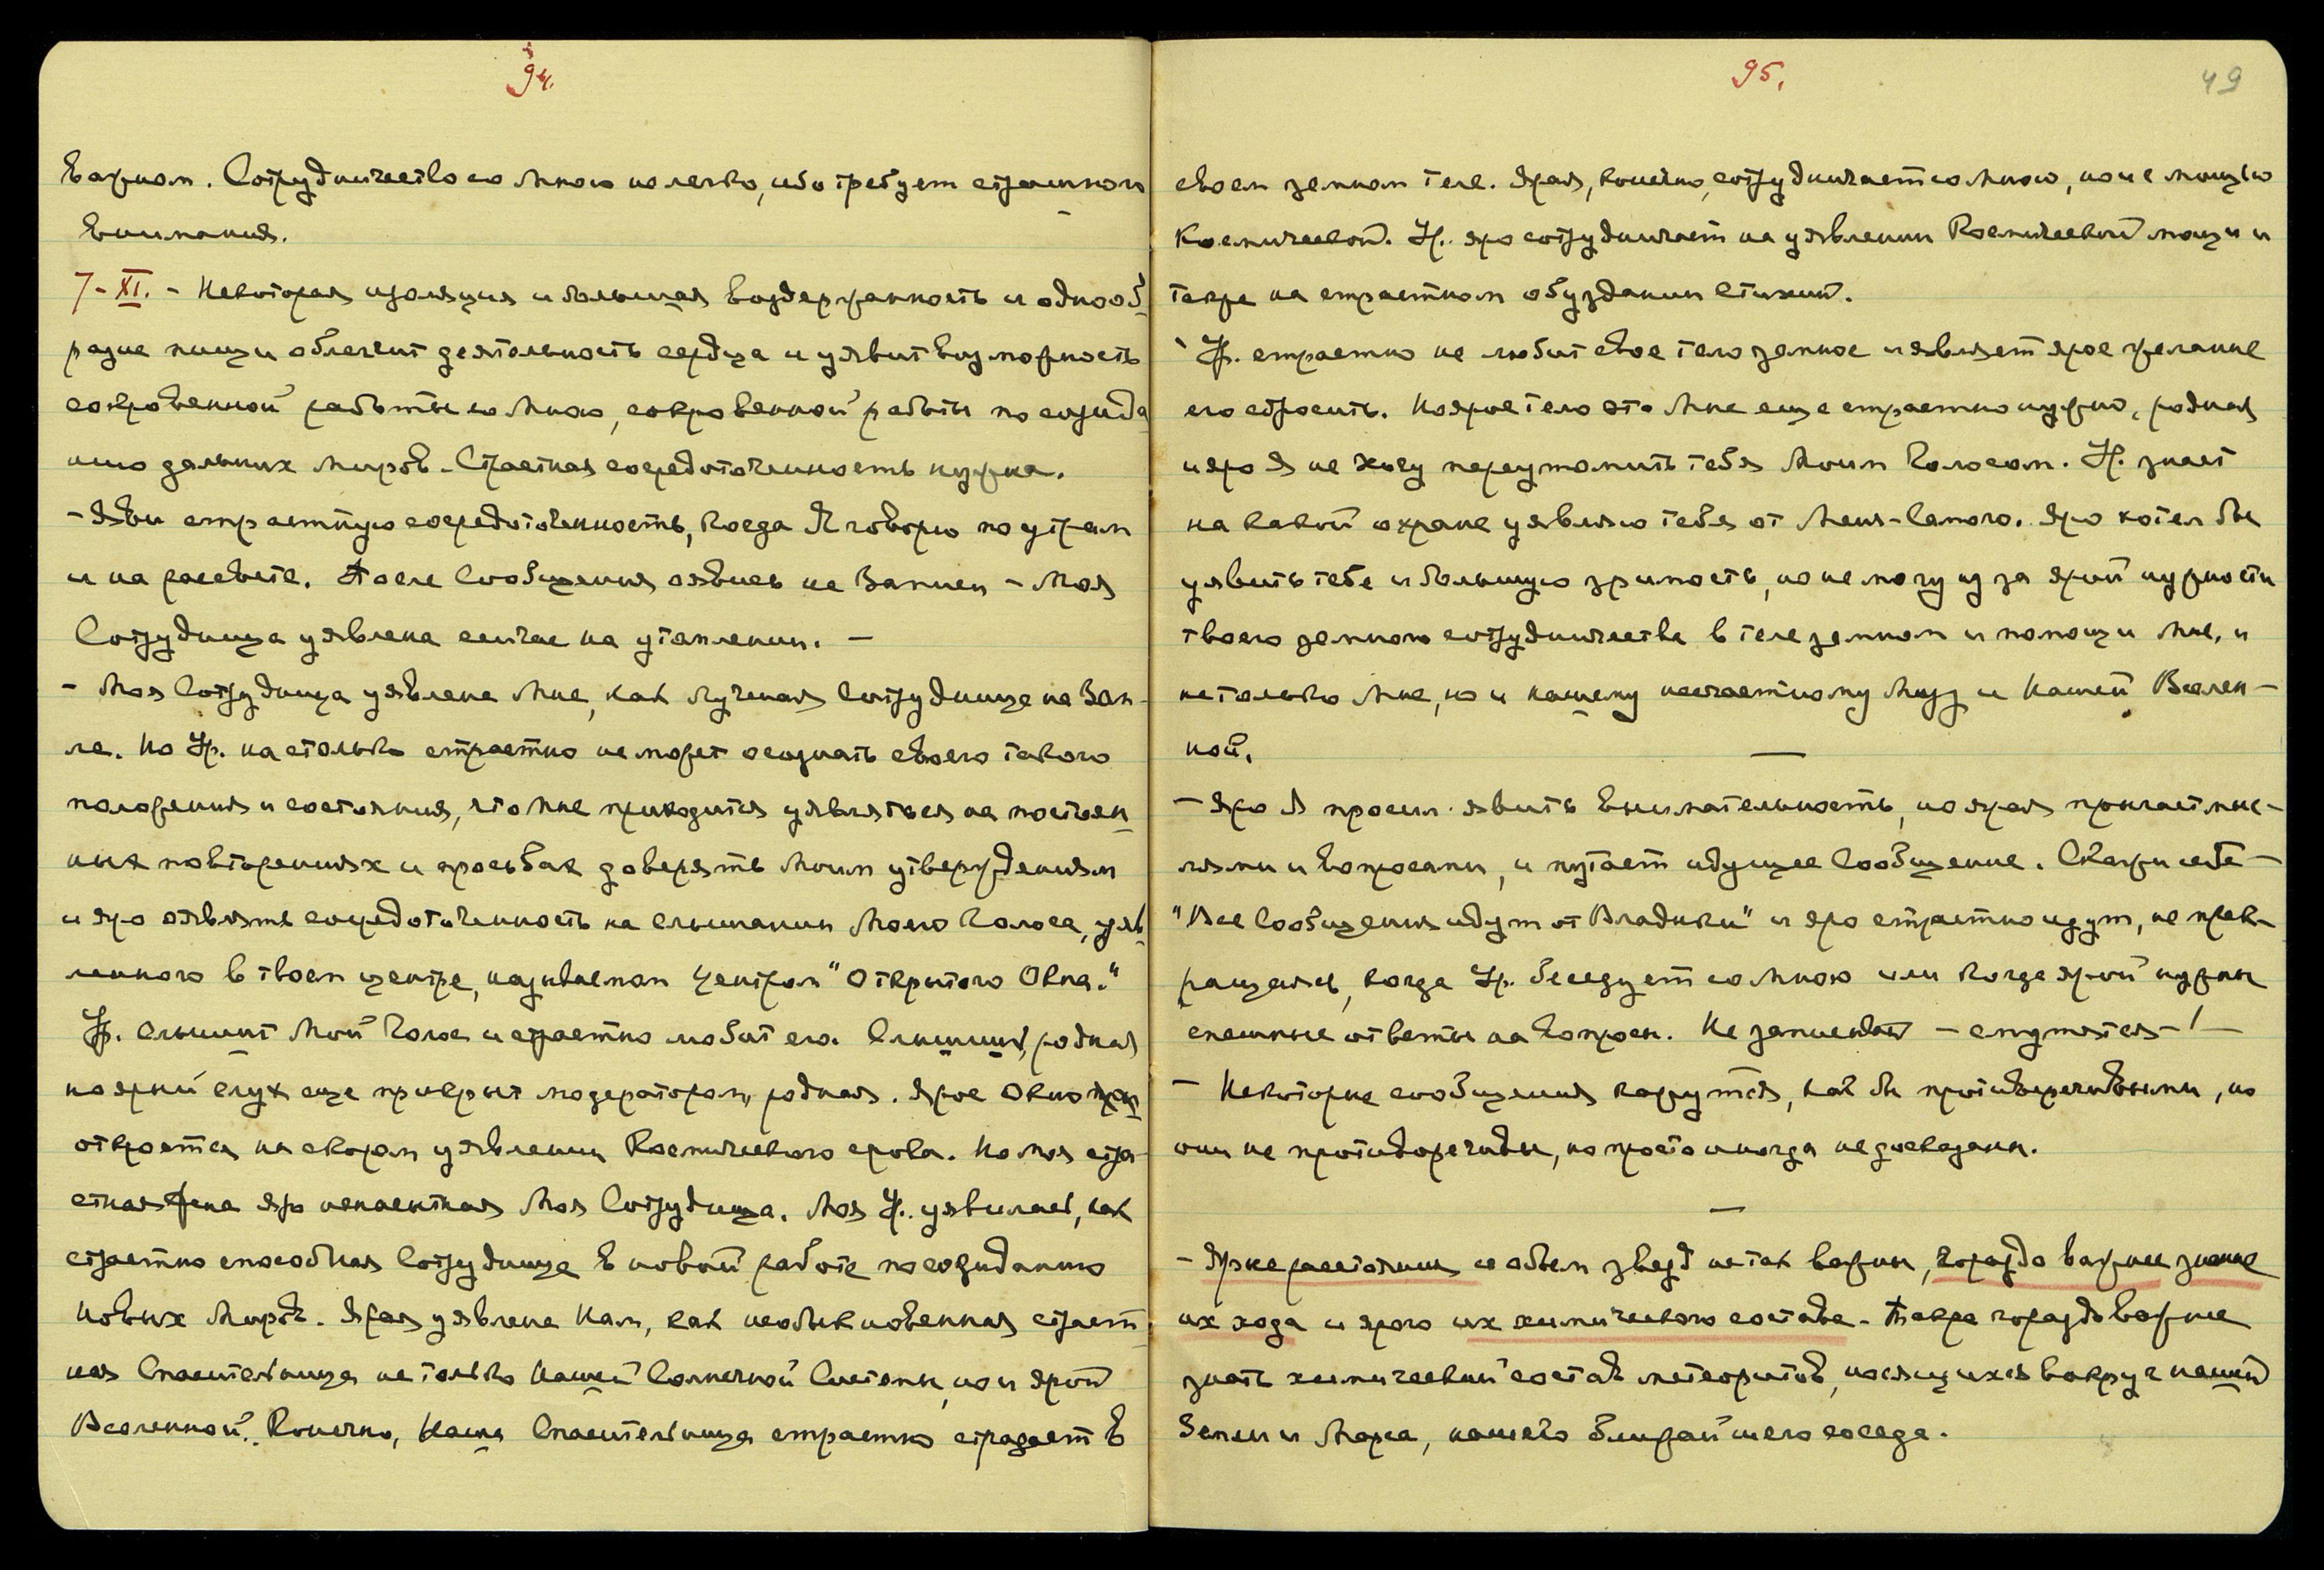 94.
важном. Сотрудничество со Мною нелегко, ибо требует страшного
внимания.
7-XI. - Некоторая изоляция и большая воздержанность и однооб
разие пищи облегчит деятельность сердца и уявит возможность
сокровенной работы со Мною, сокровенной работы по созида
нию дальних миров. Страстная сосредоточенность нужна.
- Яви страстную сосредоточенность, когда Я говорю по утрам
и на рассвете. После Сообщения оявись на Записи - Моя
Сотрудница уявлена сейчас на утомлении. -
- Моя Сотрудница уявлена Мне, как лучшая Сотрудница на Зем-
ле. Но Ур. настолько страстно не может осознать своего такого
положения и состояния, что Мне приходится уявляться на постоян
ных повторениях и просьбах доверять Моим утверждениям
и яро оявлять сосредоточенность на слышании Моего Голоса, уяв
ленного в твоем центре, называемом Центром "Открытого Окна."
Ур. слышит Мой Голос и страстно любит его. Слышишь, родная
но ярый слух еще прикрыт модератором, родная. Ярое Окно
откроется на скором уявлении Космического срока. Но моя стра-
стная Жена яро Моя Сотрудница. Моя Ур. уявилась, как
страстно способная Сотрудница в новой работе по созиданию
Новых Миров. Ярая уявлена Нам, как необыкновенная страст
ная Спасительница не только Нашей Солнечной Системы, но и ярой
Вселенной. Конечно, Наша Спасительница страстно страдает в
95.
49
своем земном теле. Ярая, конечно, сотрудничает со Мною, но не мощью
Космической. Ур. яро сотрудничает на уявлении Космической мощи и
также на страстном обуздании Стихий.
Ур. страстно не любит свое тело земное и являет ярое желание
его сбросить. Но ярое тело это Мне еще страстно нужно, родная
и яро Я не хочу переутомить тебя Моим Голосом. Ур. знает
на какой охране уявляю тебя от Меня-Самого. Яро хотел бы
уявить тебе и большую зримость, но не могу из за ярой нужности
твоего земного сотрудничества в теле земном и помощи Мне, и
не только Мне, но и нашему несчастному Миру и Нашей Вселен-
ной.
- Яро Я просил явить внимательность, но ярая мысле-
лями и вопросами, и путает идущее Сообщение. Скажи себе -
"Все Сообщения идут от Владыки" и яро страстно идут, не прек-
ращаясь, когда Ур. беседует со Мною или когда ярой нужны
спешные ответы на вопросы. Не записывай - смутятся - ! -
- Некоторые сообщения кажутся, как бы противоречивыми, но
они не противоречивы, но просто иногда недосказаны.
- Ярые расстояния и объем звезд не так важны, гораздо важнее знание
их хода и ярого их химического состава. Также гораздо важнее
знать химический состав метеоритов, носящихся вокруг нашей
Земли и Марса, нашего ближайшего соседа.